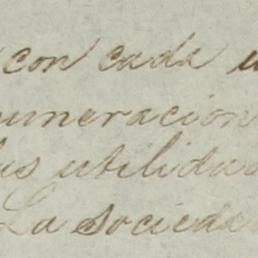 con cada
uneracion
las utilidad
La socieda